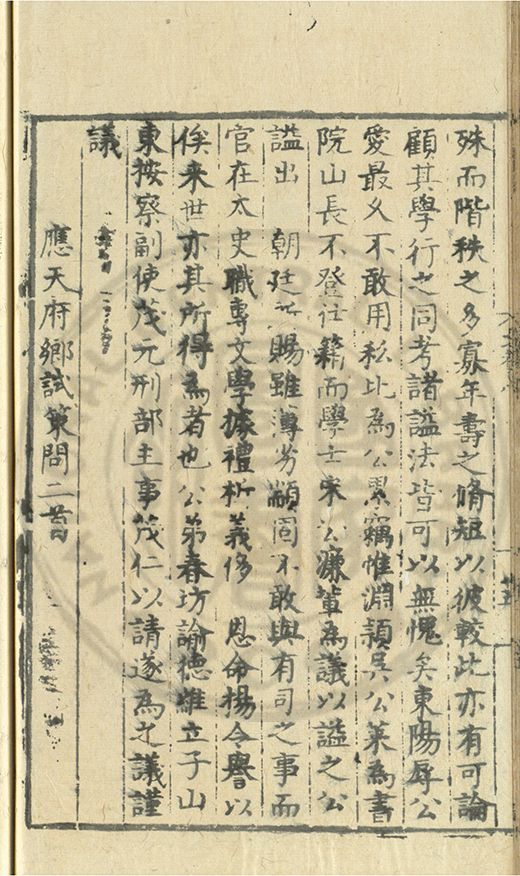 殊而階秩之多寡年壽之脩短以彼較此亦有可論
顧其學行之同考諸謚法皆可以無愧矣東陽辱公
愛最乆不敢用私比為公累竊惟淵頴吳公萊為書
院山長不登仕籍而學士宋公濂輩為議以謚之公
謚出　朝廷所賜雖薄劣顓固不敢與有司之事而
官在太史職專文學據禮析義侈　恩命揚令譽以
俟来世亦其所得為者也公弟春坊諭德雄立子山
東按察副使茂元刑部主事茂仁以請遂為之議謹
議
應天府鄉試策問二首